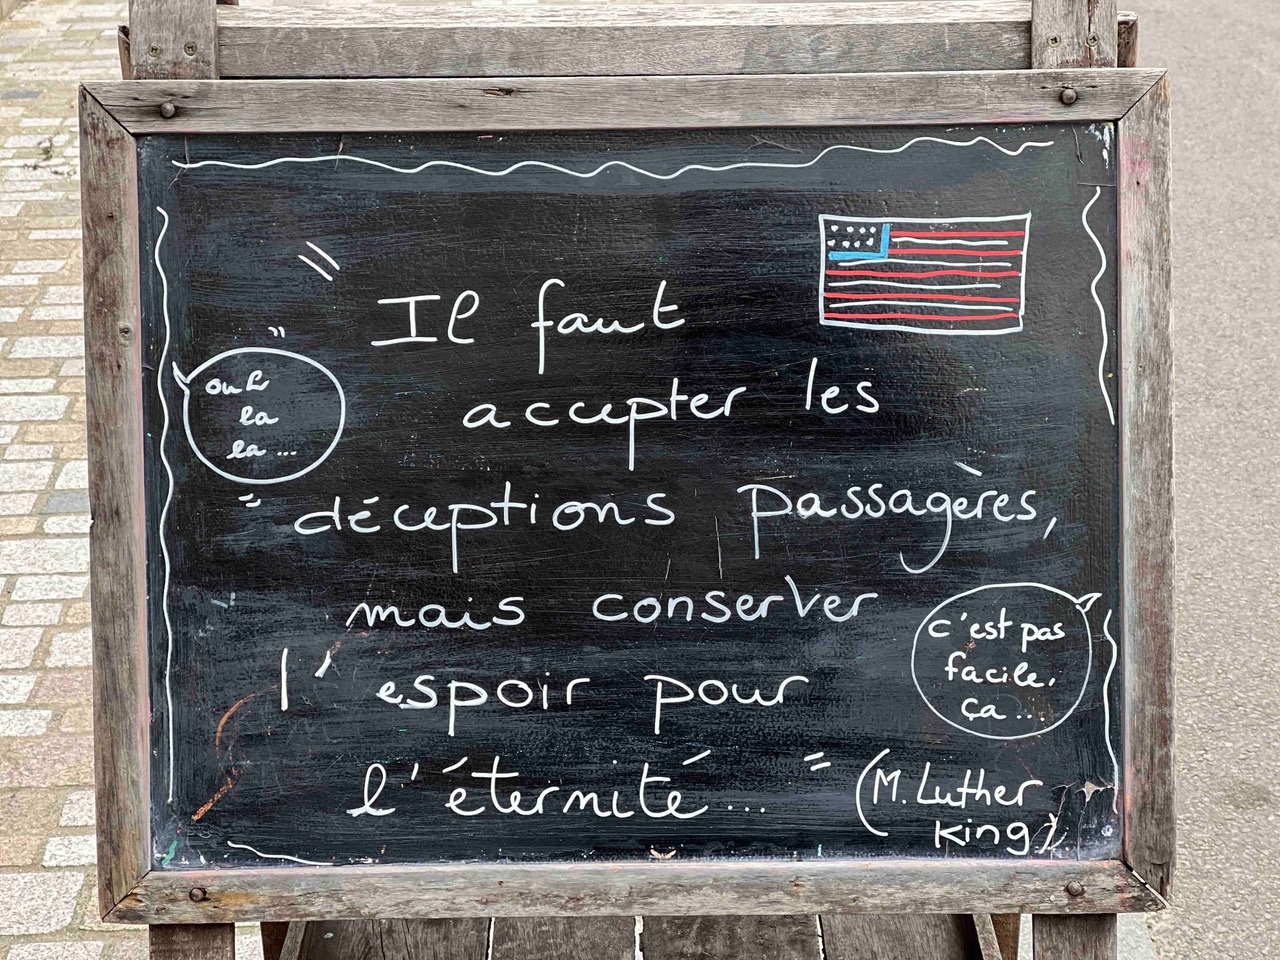 " Il faut
accepter les
déceptions passagères,
mais conserver
l'espoir pour
l'éternité... " (M. Luther
King)
" ouh
la
la... "
c'est pas
facile,
ça...